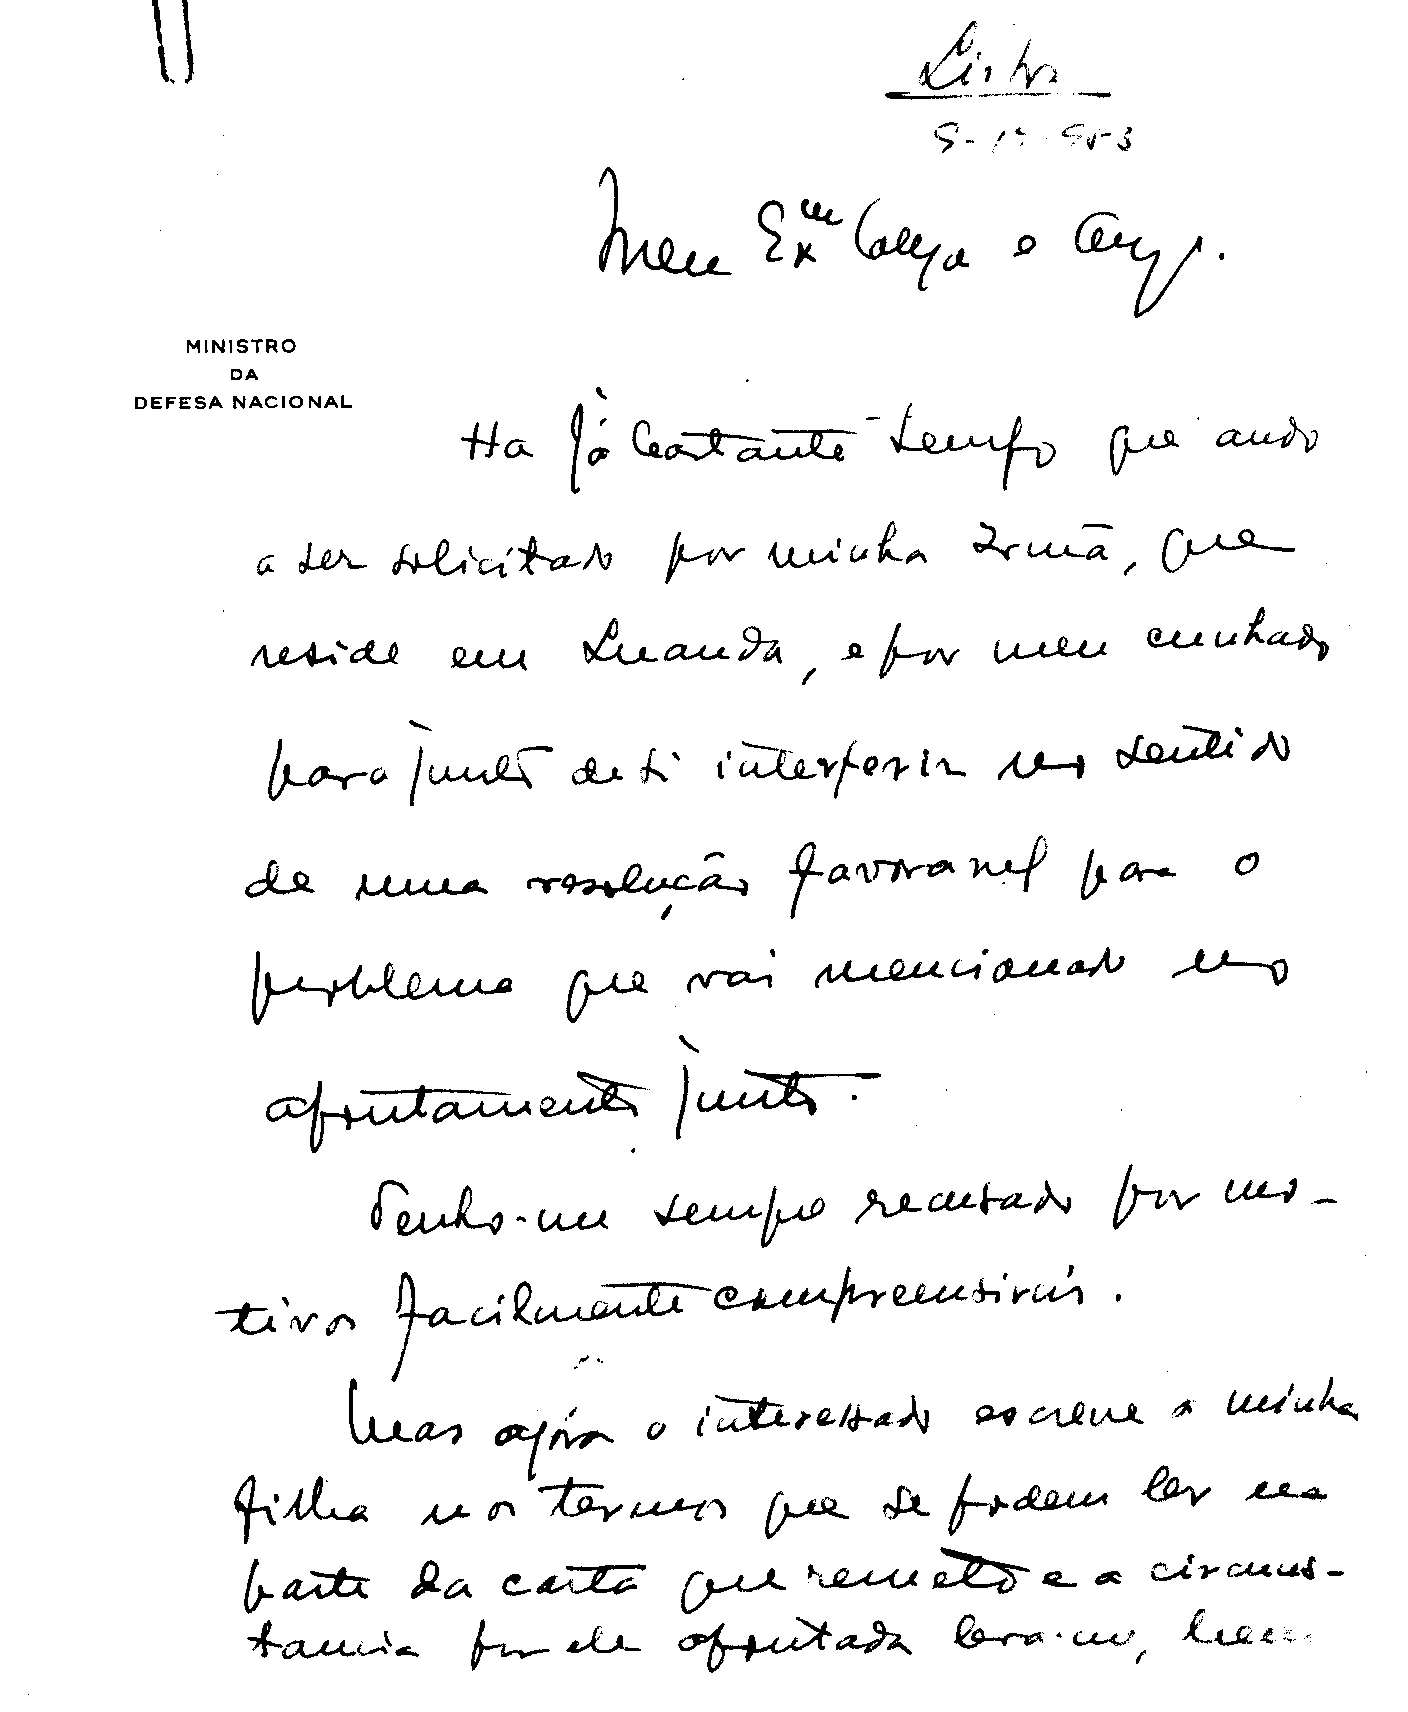 Meu Exᵐᵒ Colega e Amgº.
MINISTRO
DA
DEFESA NACIONAL
Ha já bastante tempo que ando
a ser solicitado por minha Irmã, que
reside em Luanda, e por meu cunhado
para junto de si interferir no sentido
de uma resolução favoravel para o
problema que vai mencionado no
apontamento junto.
Tenho-me sempre recusado por mo-
tivos facilmente compreensiveis.
Mas agora o interessado escreve a minha
filha nos termos que se podem ler na
parte da carta que remeto e a circuns-
tancia por ele apontada leva-me, bem